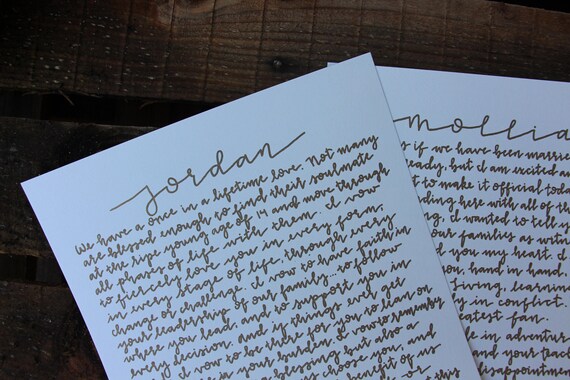 Jordan
We have a once in a lifetime love. Not many
are blessed enough to find their soulmate
at the ripe young age of 14 and move through
all phases of life with them. I vow
to fiercely love you in every form,
in every stage of life, through every
change or challenge. I vow to have faith in
your leadership of our family...to follow
where you lead, and to support you in
every decision. and if things ever get
I vow to be there for you to lean on
in your burden. I vow to remember
blessing but also a
choose you, and
benefit of us
or this
Mollia
s if we have been marrie
ready, but I am excited an
t to make it official toda
ding here with all of th
g, I wanted to tell y
ur families as witn
d you my heart. I
ou, hand in hand.
living, learnin
y in conflict.
eatest fan.
e in adventur
and your
disappointmen